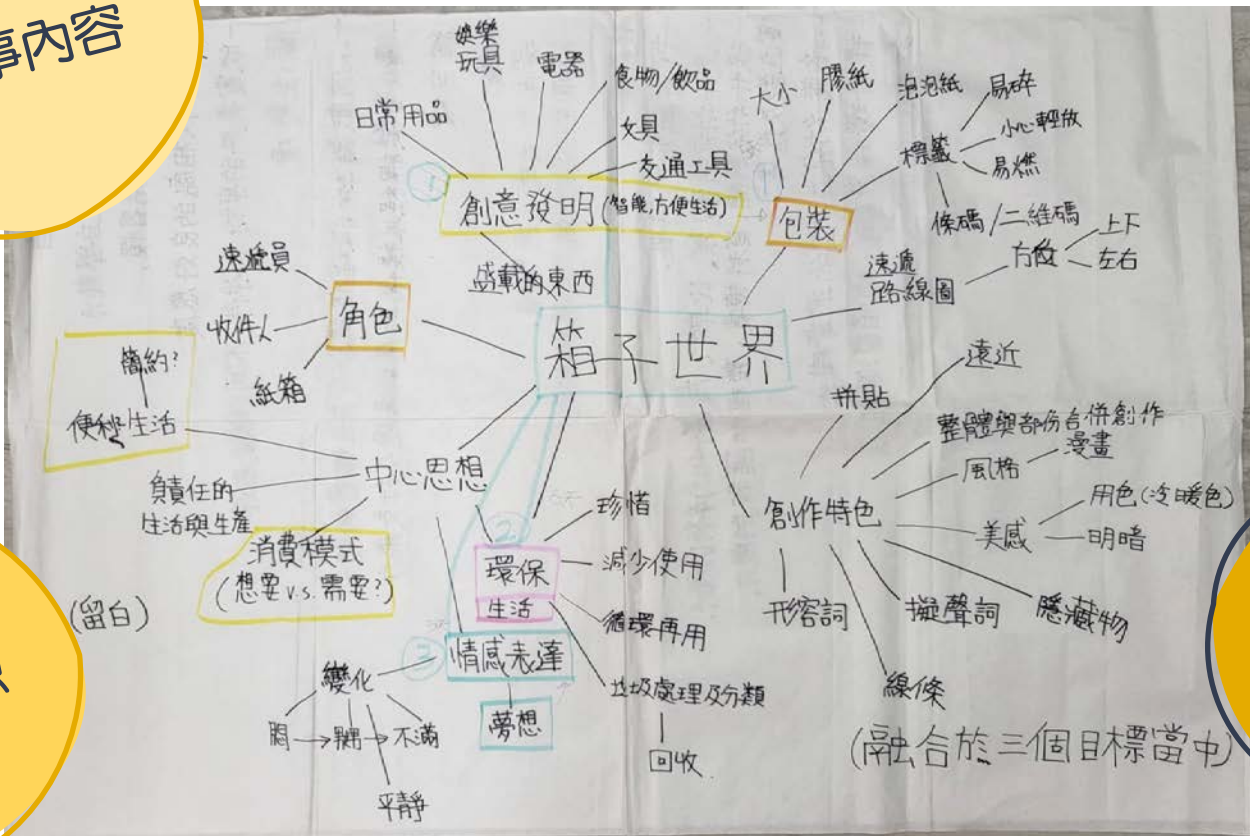 事內容
娛樂
玩具
電器
食物/飲品
日常用品
文具
交通工具
①
創意發明(智能,方便生活)
盛載的東西
大小
膠紙
泡泡紙
標籤
易碎
小心輕放
易燃
條碼/二維碼
包裝
速遞
路線圖
方位
上下
左右
速遞員
收件人
紙箱
角色
箱子世界
簡約?
便利生活
中心思想
負責任的
生活與生產
消費模式
(想要v.s.需要?)
(留白)
②
環保
生活
珍惜
減少使用
循環再用
垃圾處理及分類
回收
③
情感表達
夢想
變化
悶→
→不滿
平靜
拼貼
遠近
整體與部份合併創作
風格
漫畫
創作特色
美感
用色(冷暖色)
明暗
形容詞
擬聲詞
隱藏物
線條
(融合於三個目標當中)